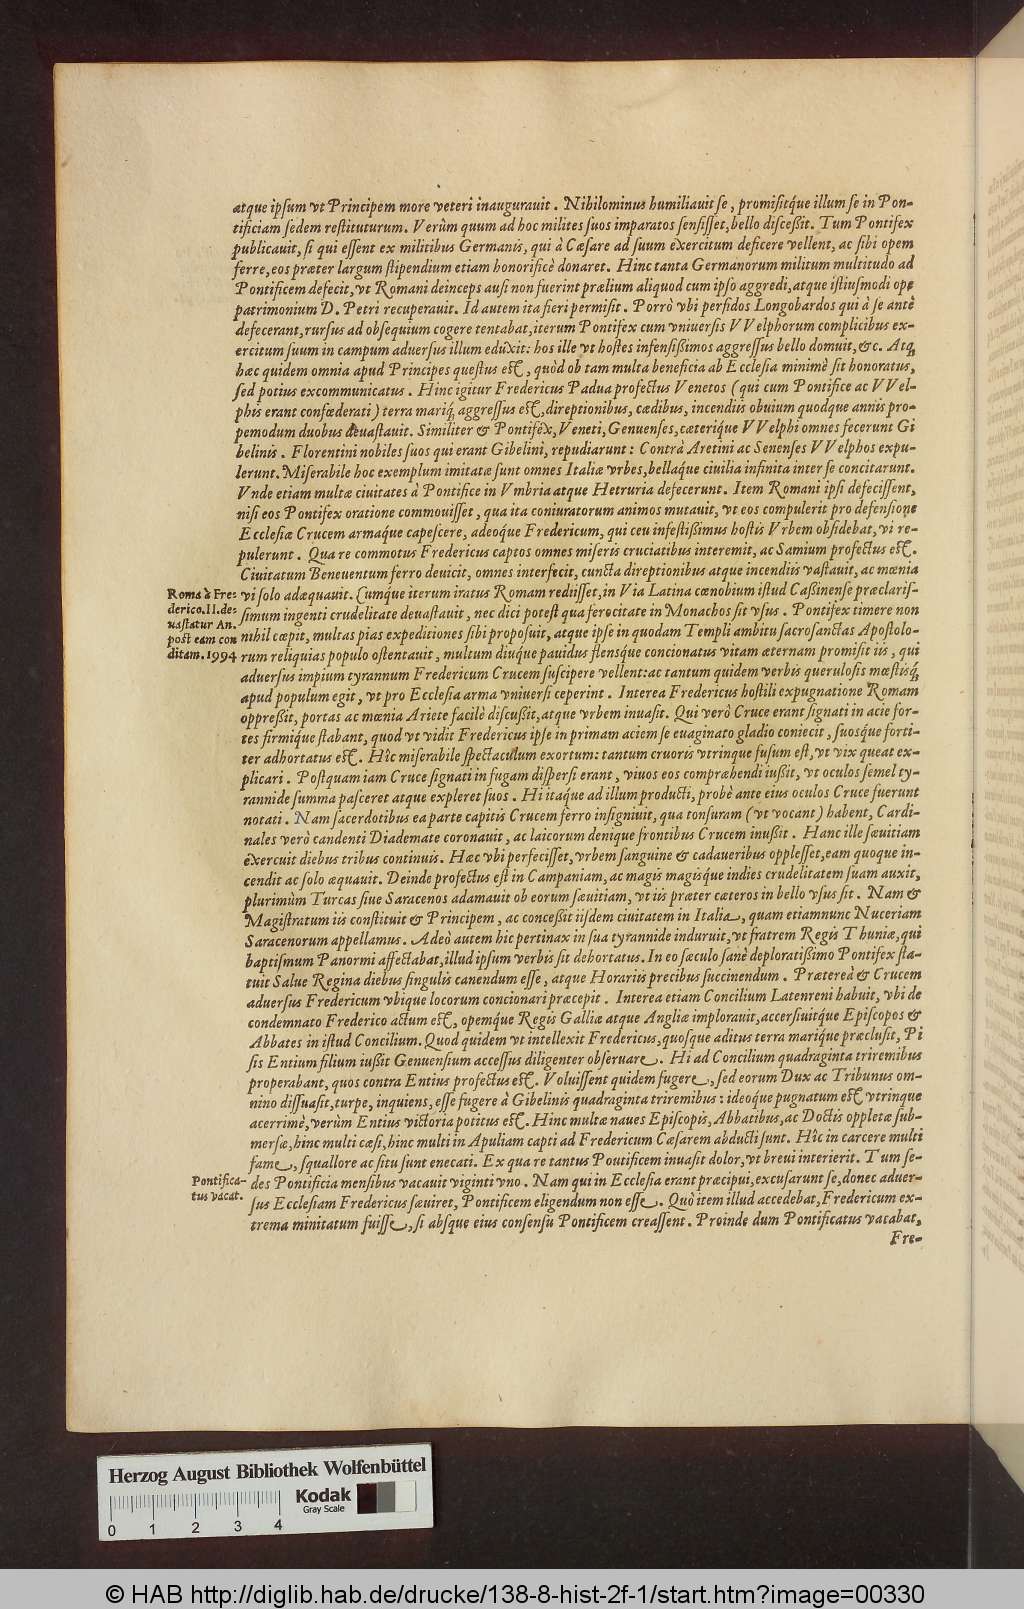 atque ipsum vt Principem more veteri inaugurauit. Nihilominus humiliauit se, promisitq́ue illum se in Pon-
tificiam sedem restituturum. Verùm quum ad hoc milites suos imparatos sensisset, bello discessit. Tum Pontifex
publicauit, si qui essent ex militibus Germanis, qui à Cæsare ad suum exercitum deficere vellent, ac sibi opem
ferre, eos præter largum stipendium etiam honorificè donaret. Hinc tanta Germanorum militum multitudo ad
Pontificem defecit, vt Romani deinceps ausi non fuerint prælium aliquod cum ipso aggredi, atque istiusmodi ope
patrimonium D. Petri recuperauit. Id autem ita fieri permisit. Porrò vbi perfidos Longobardos qui à se antè
defecerant, rursus ad obsequium cogere tentabat, iterum Pontifex cum vniuersis VVelphorum complicibus ex-
ercitum suum in campum aduersus illum eduxit: hos ille vt hostes infensissimos aggressus bello domuit, &c. Atq́
hæc quidem omnia apud Principes questus est, quòd ob tam multa beneficia ab Ecclesia minimè sit honoratus,
sed potius excommunicatus. Hinc igitur Fredericus Padua profectus Venetos (qui cum Pontifice ac VVel-
phis erant confœderati) terra mariq́, aggressus est, direptionibus, cædibus, incendiis obuium quodque annis pro-
pemodum duobus deuastauit. Similiter & Pontifex, Veneti, Genuenses, cæteriq́ue VVelphi omnes fecerunt Gi
belinis. Florentini nobiles suos qui erant Gibelini, repudiarunt: Contrà Aretini ac Senenses VVelphos expu-
lerunt. Miserabile hoc exemplum imitatæ sunt omnes Italiæ vrbes, bellaque ciuilia infinita inter se concitarunt.
Vnde etiam multæ ciuitates à Pontifice in Vmbria atque Hetruria defecerunt. Item Romani ipsi defecissent,
nisi eos Pontifex oratione commouisset, qua ita coniuratorum animos mutauit, vt eos compulerit pro defensione
Ecclesiæ Crucem armaq́ue capescere, adeoq́ue Fredericum, qui ceu infestissimus hostis Vrbem obsidebat, vi re-
pulerunt. Qua re commotus Fredericus captos omnes miseris cruciatibus interemit, ac Samium profectus est.
Ciuitatum Beneuentum ferro deuicit, omnes interfecit, cuncta direptionibus atque incendiis vastauit, ac mœnia
Roma à Fre-
derico. II. de-
uastatur An.
post eam con
ditam. 1994
vi solo adæquauit. Cumq́ue iterum iratus Romam rediisset, in Via Latina cœnobium istud Cassinense præclaris-
simum ingenti crudelitate deuastauit, nec dici potest qua ferocitate in Monachos sit vsus. Pontifex timere non
nihil cœpit, multas pias expeditiones sibi proposuit, atque ipse in quodam Templi ambitu sacrosanctas Apostolo-
rum reliquias populo ostentauit, multum diuq́ue pauidus flensq́ue concionatus vitam æternam promisit iis, qui
aduersus impium tyrannum Fredericum Crucem suscipere vellent: ac tantum quidem verbis querulosis mœstisq́,
apud populum egit, vt pro Ecclesia arma vniuersi ceperint. Interea Fredericus hostili expugnatione Romam
oppressit, portas ac mœnia Ariete facilè discussit, atque vrbem inuasit. Qui verò Cruce erant signati in acie for-
tes firmiq́ue stabant, quod vt vidit Fredericus ipse in primam aciem se euaginato gladio coniecit, suosq́ue forti-
ter adhortatus est. Hîc miserabile spectaculum exortum: tantum cruoris vtrinque fusum est, vt vix queat ex-
plicari. Postquam iam Cruce signati in fugam dispersi erant, viuos eos compræhendi iussit, vt oculos semel ty-
rannide summa pasceret atque expleret suos. Hi itaq́ue ad illum producti, probè ante eius oculos Cruce fuerunt
notati. Nam sacerdotibus ea parte capitis Crucem ferro insigniuit, qua tonsuram (vt vocant) habent, Cardi-
nales verò candenti Diademate coronauit, ac laicorum denique frontibus Crucem inussit. Hanc ille sæuitiam
exercuit diebus tribus continuis. Hæc vbi perfecisset, vrbem sanguine & cadaueribus opplesset, eam quoque in-
cendit ac solo æquauit. Deinde profectus est in Campaniam, ac magis magisq́ue indies crudelitatem suam auxit,
plurimùm Turcas siue Saracenos adamauit ob eorum sæuitiam, vt iis præter cæteros in bello vsus sit. Nam &
Magistratum iis constituit & Principem, ac concessit iisdem ciuitatem in Italia, quam etiamnunc Nuceriam
Saracenorum appellamus. Adeò autem hic pertinax in sua tyrannide induruit, vt fratrem Regis Thuniæ, qui
baptismum Panormi affectabat, illud ipsum verbis sit dehortatus. In eo sæculo sanè deploratissimo Pontifex sta-
tuit Salue Regina diebus singulis canendum esse, atque Horariis precibus succinendum. Præterea & Crucem
aduersus Fredericum vbique locorum concionari præcepit. Interea etiam Concilium Latenreni habuit, vbi de
condemnato Frederico actum est, opemq́ue Regis Galliæ atque Angliæ implorauit, accersiuitq́ue Episcopos &
Abbates in istud Concilium. Quod quidem vt intellexit Fredericus, quosque aditus terra mariq́ue præclusit, Pi
sis Entium filium iussit Genuensium accessus diligenter obseruare. Hi ad Concilium quadraginta triremibus
properabant, quos contra Entius profectus est. Voluissent quidem fugere, sed eorum Dux ac Tribunus om-
nino dissuasit, turpe, inquiens, esse fugere à Gibelinis quadraginta triremibus: ideoque pugnatum est vtrinque
acerrimè, verùm Entius victoria potitus est. Hinc multæ naues Episcopis, Abbatibus, ac Doctis oppletæ sub-
mersæ, hinc multi cæsi, hinc multi in Apuliam capti ad Fredericum Cæsarem abducti sunt. Hîc in carcere multi
fame, squallore ac situ sunt enecati. Ex qua re tantus Poutificem inuasit dolor, vt breui interierit. Tum se-
Pontifica-
tus vacat.
des Pontificia mensibus vacauit viginti vno. Nam qui in Ecclesia erant præcipui, excusarunt se, donec aduer-
sus Ecclesiam Fredericus sæuiret, Pontificem eligendum non esse. Quò item illud accedebat, Fredericum ex-
trema minitatum fuisse, si absque eius consensu Pontificem creassent. Proinde dum Pontificatus vacabat,
Fre-
Herzog August Bibliothek Wolfenbüttel
Kodak
Gray Scale
0 1 2 3 4
© HAB http://diglib.hab.de/drucke/138-8-hist-2f-1/start.htm?image=00330